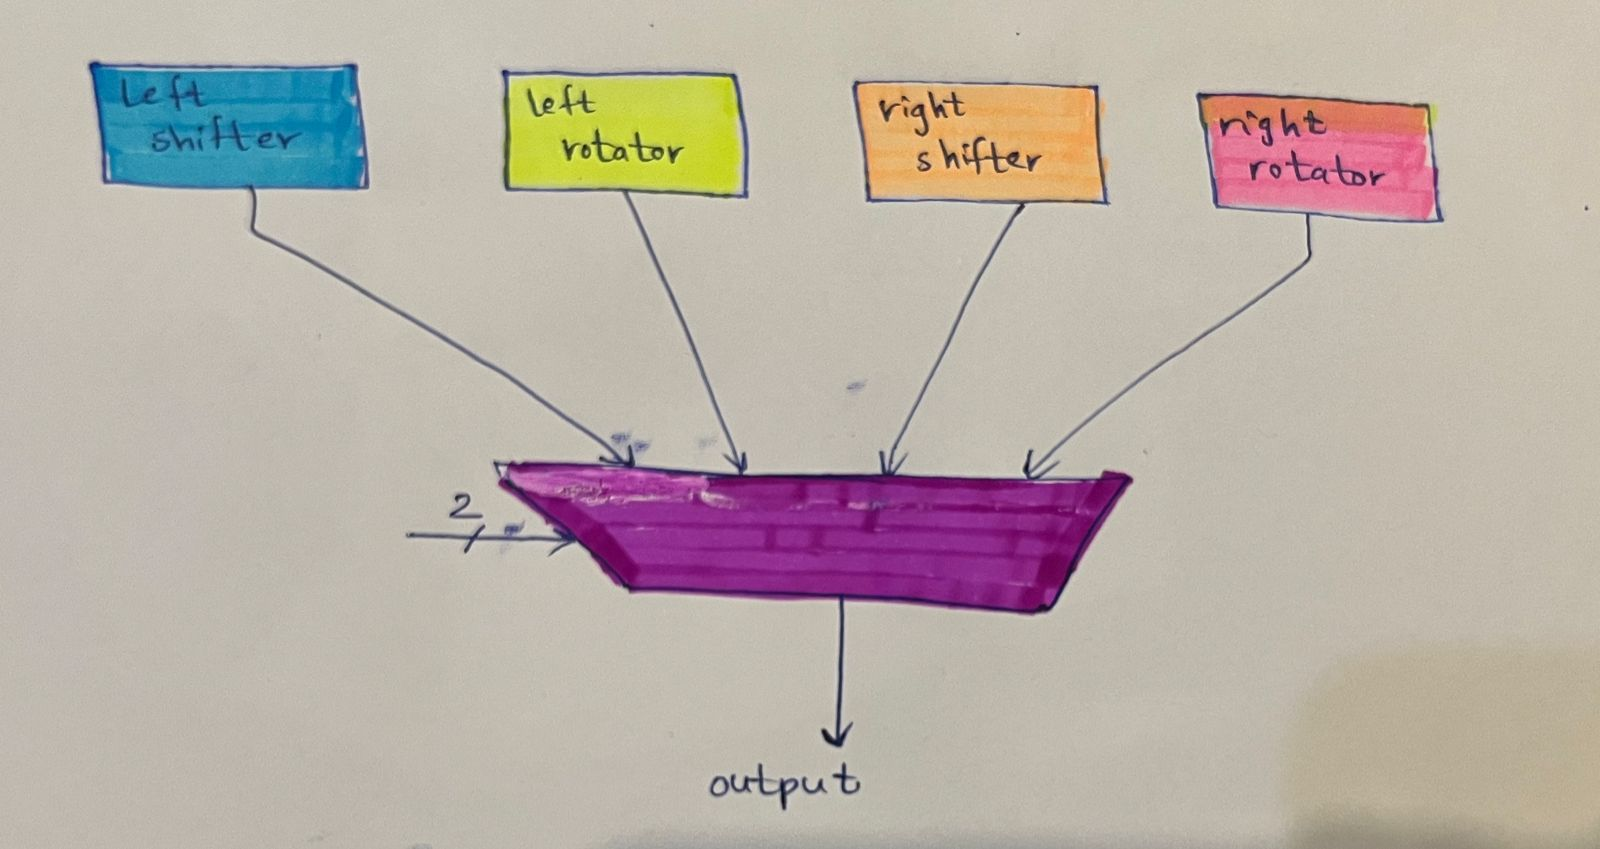 Left
shifter
left
rotator
right
shifter
right
rotator
2
output